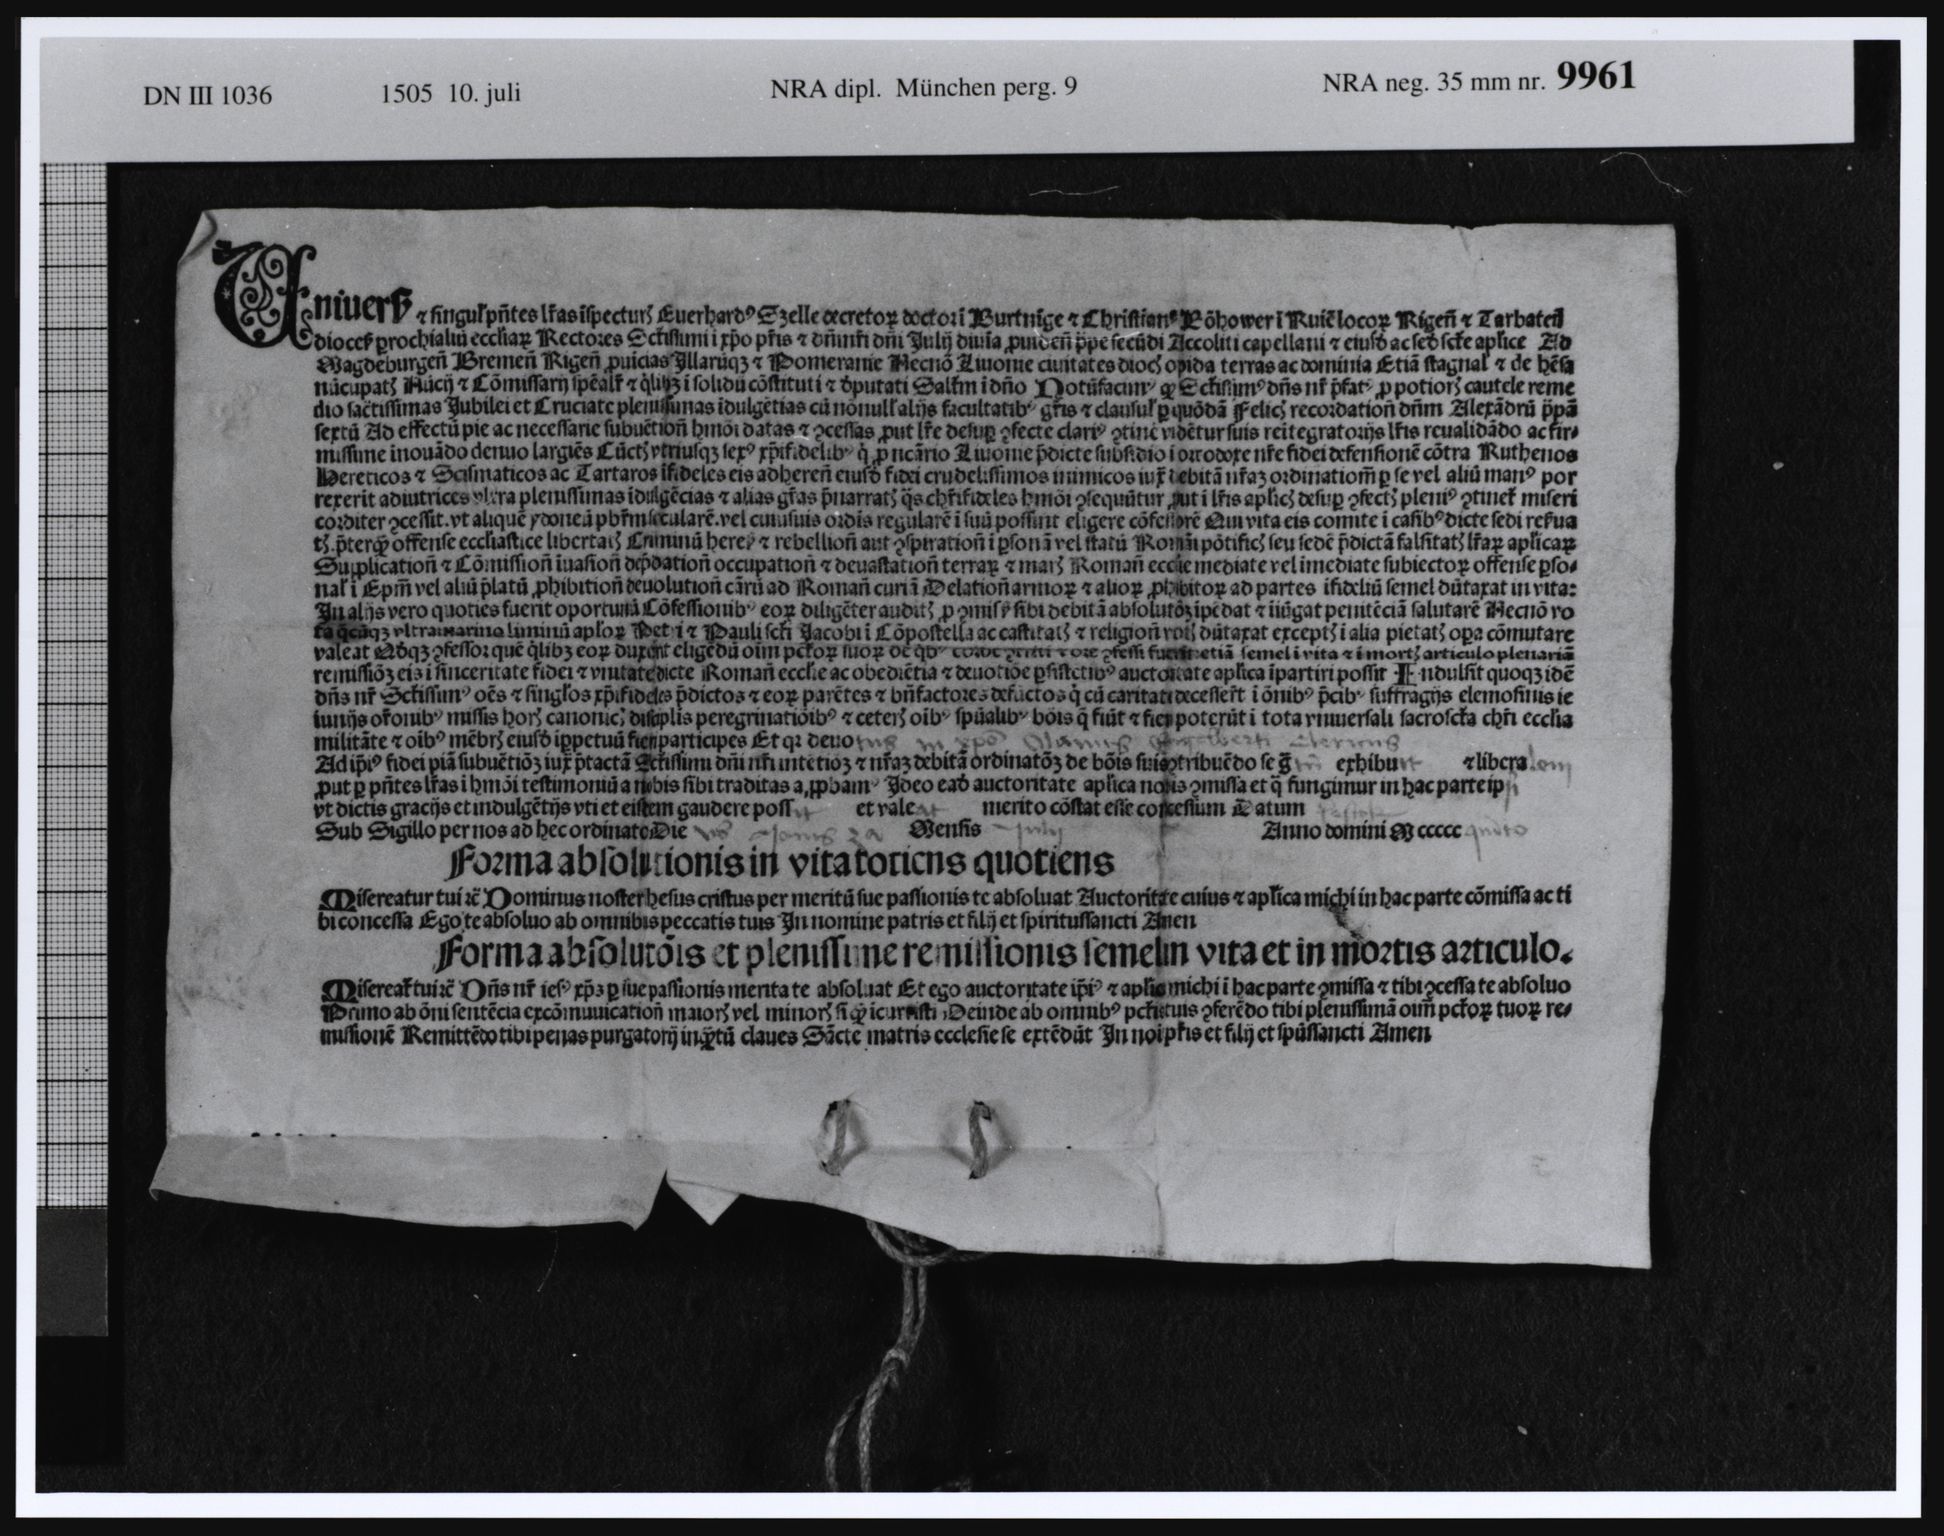 DN III 1036 1505 10. juli NRA dipl. München perg. 9 NRA neg. 35 mm nr. 9961
Uniuersꝭ ⁊ singul' pñtes lr̃as īspecturꝭ Euerhardꝰ Szelle decretoꝝ doctor ī Burtnige ⁊ Christianꝰ Bōhower ī Ruiē locoꝝ Rigeñ ⁊ Tarbateñ
diocesꝭ ꝑrochialiū eccl'iaꝝ Rectores Sctissimi ī xp̄o pr̃is ⁊ dñi nr̃i dñi Julij diuīa ꝓuideñ p̄pe secūdi Accoliti capellani ⁊ eiusd̄ ac sed̄ scte apl'ice Ad
Magdeburgeñ Bremeñ Rigeñ ꝓuīcias Illarūqꝫ ⁊ Pomeranie Necnō Liuonie ciuitates diocꝭ opida terras ac dominia Etiā stagnal' ⁊ de hēsa
nūcupatꝭ Nūcij ⁊ Cōmissarij spēalr̃ ⁊ q̄lꝫ ī solidū cōstituti ⁊ deputati Salt'm ī dño Notūfacimꝰ ꝙ Sctissimꝰ dñs nr̃ p̄fatꝰ ꝓ potiorꝭ cautele reme
dio sac̄tissimas Jubilei et Cruciate plenissimas īdulgētias cū nōnull' alijs facultatibꝰ gr̃is ⁊ clausul' ꝑ quōdā Felicꝭ recordatioñ dñm Alexādrū p̄pā
sextū Ad effectū pie ac necessarie subuētioñ hmōi datas ⁊ ꝯcessas ꝓut lr̃e desuꝑ ꝯfecte clariꝰ ꝯtinē vidētur suis reitegratorijs lr̃is reualidādo ac fir⸗
missime inouādo denuo largiēs Cūctꝭ vtriusqꝫ sexꝰ xp̄ifidelibꝰ q̄ ꝓ nc̄ario Liuonie p̄dicte subsidio ī ortodoxe nr̃e fidei defensionē cōtra Ruthenos
Hereticos ⁊ Scismaticos ac Tartaros īfideles eis adhereñ eiusd̄ fidei crudelissimos inimicos iuxꝭ debitā nr̃aꝫ ordinatioñ ꝑ se vel aliū manꝰ por
rexerit adiutrices vltra plenissimas īdulgēcias ⁊ alias gr̃as p̄narratꝭ q̄s chr̃ifideles hmōi ꝯsequūtur ꝓut ī lr̃is apl'icꝭ desuꝑ ꝯfectꝭ pleniꝰ ꝯtinet miseri
corditer ꝯcessit. vt aliquē ydoneū pbr̃m secularē. vel cuiusuis ordīs regularē ī suū possint eligere cōfessorē Qui vita eis comite ī casibꝰ dicte sedi res̃ua
tꝭ. p̄terqꝫ offense eccl'iastice libertatꝭ Criminū heresꝭ ⁊ rebellioñ aut ꝯspiratioñ ī ꝑsonā vel statū Romāi pōtificꝭ seu sedē p̄dictā falsitatꝭ lr̃aꝝ apl'icaꝝ
Supplicatioñ ⁊ Cōmissioñ iuasioñ dep̄datioñ occupatioñ ⁊ deuastatioñ terraꝝ ⁊ marꝭ Romañ eccl'ie mediate vel imediate subiectoꝝ offense ꝑso⸗
nal' ī Ep̄m vel aliū p̄latū ꝓhibitioñ deuolutioñ cārū ad Romañ curiā Delatioñ armoꝝ ⁊ alioꝝ ꝓhibitoꝝ ad partes īfideliū semel dūtaxat in vita:
In alijs vero quoties fuerit oportunū Cōfessionibꝰ eoꝝ diligēter auditꝭ ꝓ ꝯmissꝭ sibi debitā absolutōꝫ īpēdat ⁊ iniūgat penitēciā salutarē Necnō vo
ta q̄cūqꝫ vltramarino liminū apl'oꝝ Petri ⁊ Pauli scti Jacobi ī Cōpostella ac castitatꝭ ⁊ religioñ votꝭ dūtaxat exceptꝭ ī alia pietatꝭ oꝑa cōmutare
valeat Adqꝫ ꝯfessor quē q̄libꝫ eoꝝ duxerit eligēdū oim pctoꝝ suoꝝ de qbꝰ corde ꝯtriti ⁊ ore ꝯfessi fuerint etiā semel ī vita ⁊ ī mortꝭ articulo plenariā
remissiōꝫ eis ī sinceritate fidei ⁊ vnitate dicte Romañ eccl'ie ac obediētia ⁊ deuotiōe ꝑsistētibꝰ auctoritate apl'ica īpartiri possit Indulsit quoqꝫ idē
dñs nr̃ Sctissimꝰ oēs ⁊ singl'os xp̄ifideles p̄dictos ⁊ eoꝝ parētes ⁊ bñfactores defūctos q̄ cū caritate decesser̃t ī ōnibꝰ p̄cibꝰ suffragijs elemosinis ie
iunijs or̃onibꝰ missis horꝭ canonicꝭ disciplis peregrinatiōibꝰ ⁊ ceterꝭ oībꝰ spūalibꝰ bōis q̄ fiūt ⁊ fieri poterūt ī tota vniuersali sacroscta chr̃i eccl'ia
militāte ⁊ oībꝰ mēbrꝭ eiusd̄ īꝑpetuū fieri participes Et qꝛ deuotus in xp̄o Olauus Engelberti clericus
Ad ip̄iꝰ fidei piā subuētiōꝫ iuxꝭ p̄tactā Sctissimi dñi nr̃i intētiōꝫ ⁊ nr̃aꝫ debitā ordinatōꝫ de bōis suis ꝯtribuēdo se g̃tū exhibuit ⁊ liberalem
ꝓut ꝑ pñtes lr̃as ī hmōi testimoniū a nobis sibi traditas aꝓbamꝰ Ideo ead̄ auctoritate apl'ica nobis ꝯmissa et q̄ fungimur in hac parte ip̄i
vt dictis gracijs et indulgētijs vti et eisdem gaudere possit et valeat merito cōstat esse concessum Datum
Sub Sigillo per nos ad hec ordinato Die Mensis Julij Anno domini M ccccc quīto
Forma absolutionis in vita totiens quotiens
Misereatur tui ⁊c̄ Dominus noster hesus cristus per meritū sue passionis te absoluat Auctoritate cuius ⁊ apl'ica michi in hac parte cōmissa ac ti
bi concessa Ego te absoluo ab omnibis peccatis tuis In nomine patris et filij et spiritussancti Amen
Forma absolutōis et plenissime remissionis semel in vita et in mortis articulo.
Misereat̃ tui ⁊c̄ Dñs nr̃ iesꝰ xp̄s ꝑ sue passionis merita te absoluat Et ego auctoritate ip̄iꝰ ⁊ apl'ica michi ī hac parte ꝯmissa ⁊ tibi ꝯcessa te absoluo
Primo ab ōni sentēcia excōmunicatioñ maiorꝭ vel minorꝭ si quā incurristi Deinde ab omnibꝰ pctis tuis ꝯferēdo tibi plenissimā oim̄ pctoꝝ tuoꝝ re⸗
missionē Remittēdo tibi penas purgatorij inqꝫtū claues Sācte matris ecclesie se extēdūt In noī pr̃is et filij et spūssancti Amen